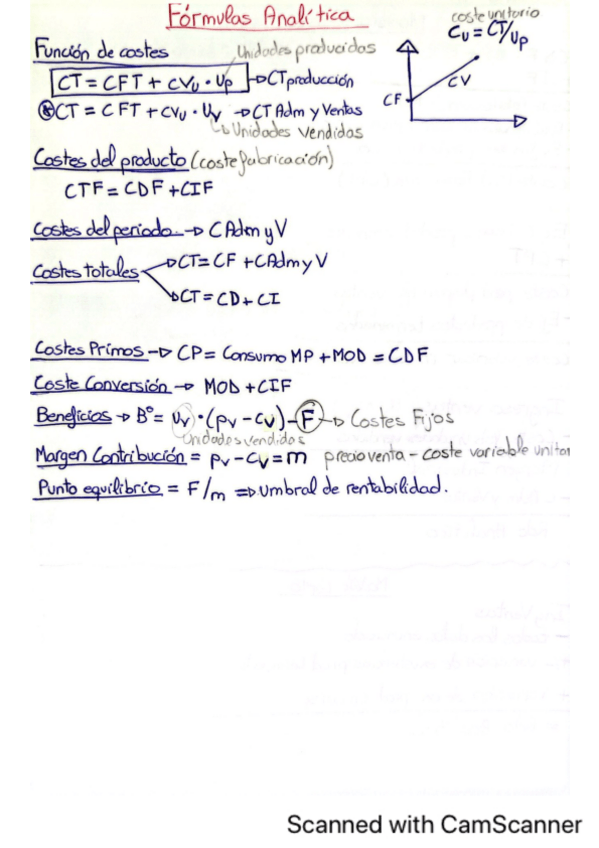 Fórmulas Analítica
coste unitorio
Cu = CT/Up
Función de costes
Unidades producidas
CT = CFT + CVu · Up → CT producción
CV
CF
⊛CT = CFT + CVu · Uv → CT Adm y Ventas
↳ Unidades Vendidas
Costes del producto (coste fabricación)
CTF = CDF + CIF
Costes del periodo → CAdm y V
Costes totales → CT = CF + CAdm y V
→ CT = CD + CI
Costes Primos → CP = Consumo MP + MOD = CDF
Coste Conversión → MOD + CIF
Beneficios → Bº = Uv · (pv - cv) - F → Costes Fijos
Unidades vendidos
Margen Contribución = pv - cv = m precio venta - coste variable unitar
Punto equilibrio = F/m ⇒ umbral de rentabilidad.
Scanned with CamScanner